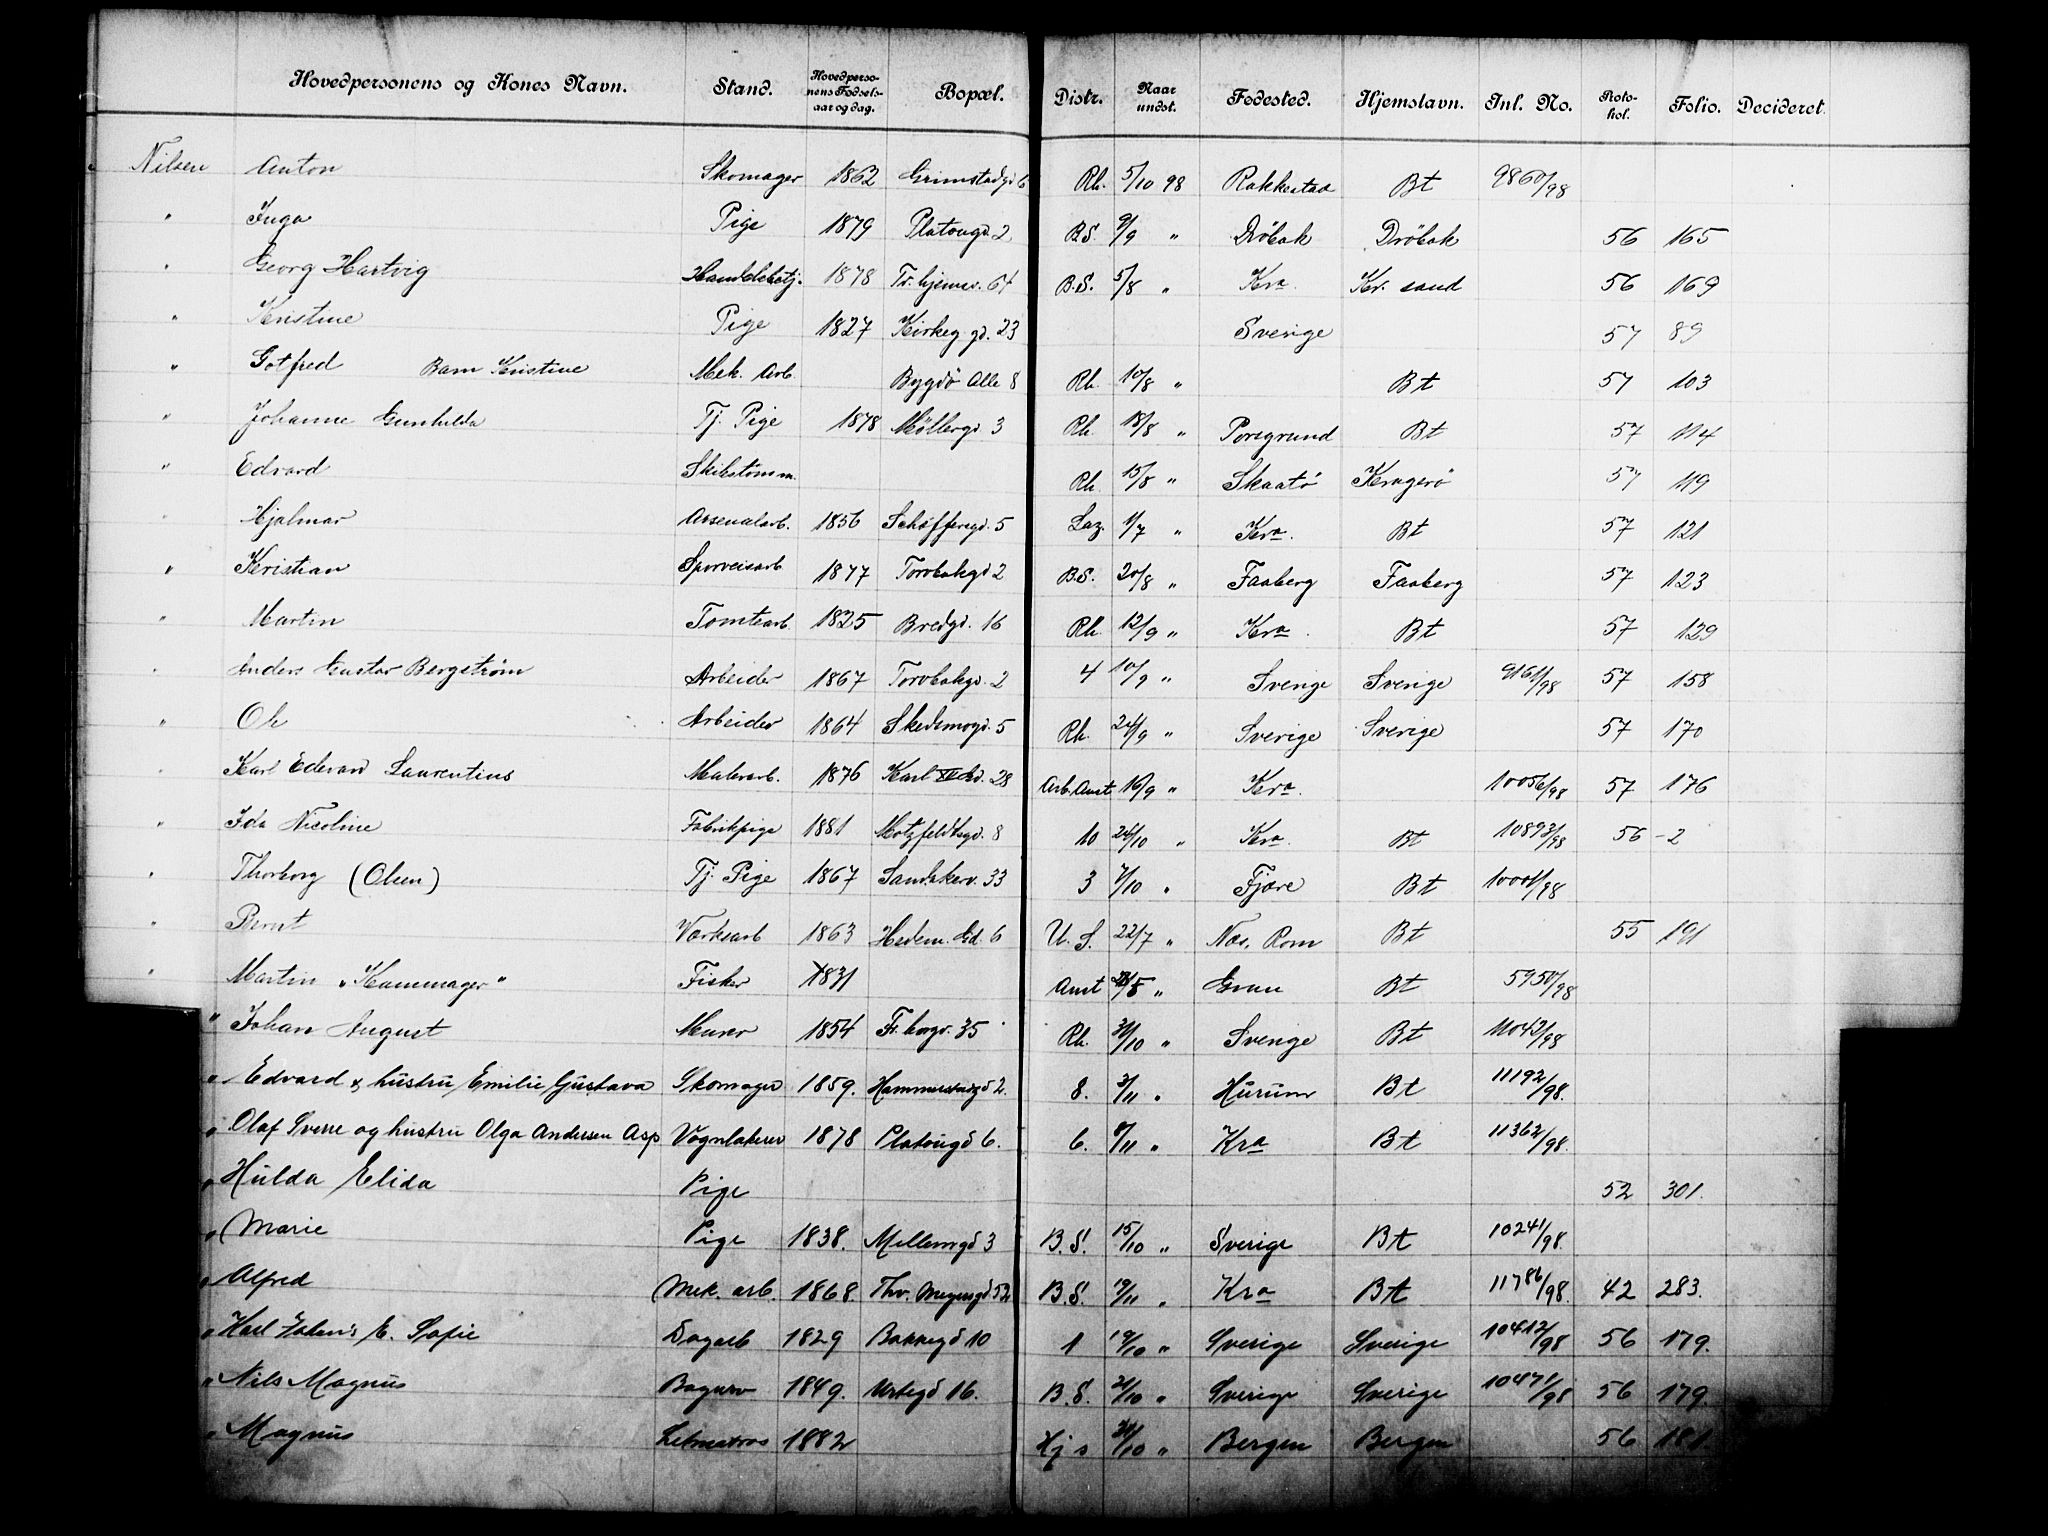 Hovedpersonens og Kones Navn. Stand. Hovedpersonens Fødselsaar og dag. Bopæl. Distr. Naar undst. Fødested. Hjemstavn. Inl. No. Protokol. Folio. Decideret.
Nilsen Anton Skomager 1862 Grimstadgd 6 Rh. 5/10 98 Rakkestad Bt 9860/98
" Inga Pige 1879 Platougd. 2 B.S. 9/9 " Dröbak Dröbak 56 165
" Georg Hartvig 1878 Tr.hjemsv. 64 B.S. 5/8 " Kra. Kr. sand 56 169
" Kristine Pige 1827 Kirkeg gd. 23 Sverige 57 89
" Gotfred Barn Kristine Mek. Arb. Bygdö Alle 8 Rh. 10/8 " Bt 57 103
" Johanne Gunhilda Tj. Pige 1878 Möllergd 3 Rh. 18/8 " Porsgrund Bt 57 114
" Edvard Skibstömm. Rh. 15/8 " Skaatö Kragerö 57 119
" Hjalmar Arsenalarb. 1856 Schöffersgd. 5 Laz. 1/7 " Kra. Bt 57 121
" Kristian Sporveisarb 1877 Torvbakgd 2 B.S. 20/8 " Faaberg Faaberg 57 123
" Martin Tomtearb. 1825 Bredgd. 16 Rh. 12/9 " Kra. Bt 57 129
" Anders Gustav Bergström Arbeider 1867 Torvbakgd. 2 4 10/9 " Sverige Sverige 9161/98 57 158
" Ole Arbeider 1864 Skedsmogd. 5 Rh. 24/9 " Sverige Sverige 57 170
" Karl Edvard Laurentius Malerarb. 1876 Karl XII gd. 28 Arb.Anst 16/9 " Kra. 10056/98 57 176
" Ida Nicoline Fabrikpige 1881 Motzfeldtsgd. 8 10 26/10 " Kra. Bt 10893/98 56 -2
" Thorborg (Olsen) Tj. Pige 1867 Sandakerv. 33 3 7/10 " Fjære Bt 10001/98
" Bernt Værksarb 1863 Hedem. Gd. 6 U.S. 22/7 " Næs, Rom Bt 55 191
" Martin "Kammager" Fisker 1831 Anst " Gran Bt 5950/98
" Johan August Murer 1854 Fr.borgv. 35 Rh. 31/10 " Sverige Bt 11043/98
" Edvard & hustru Emilie Gustava Skomager 1859. Hammerstadgd 2. 8. 3/11 " Hurum Bt 11192/98.
" Olaf Sverre og hustru Olga Andersen Asp Vognlakerer 1878 Platougd 6. 6. 8/11 " Kra Bt 11362/98.
" Hulda Elida Pige 52 301.
" Marie Pige 1838. Mellemgd 3 B.S. 15/10 " Sverige Bt 10241/98.
" Alfred Mek. arb. 1868. Thv. Meyersgd 52 B.S. 19/11 " Kra Bt 11786/98. 42 283.
" Karl Johans E. Sofie Dagarb 1829 Bakkegd 10 1 19/10 " Sverige Sverige 10412/98 56 179.
" Nils Magnus Bager 1849. Urtegd 16. B.S. 21/10 " Sverige Sverige 10471/98 56 179.
" Magnus Letmatros 1882 Hj s /10 " Bergen Bergen 56 181